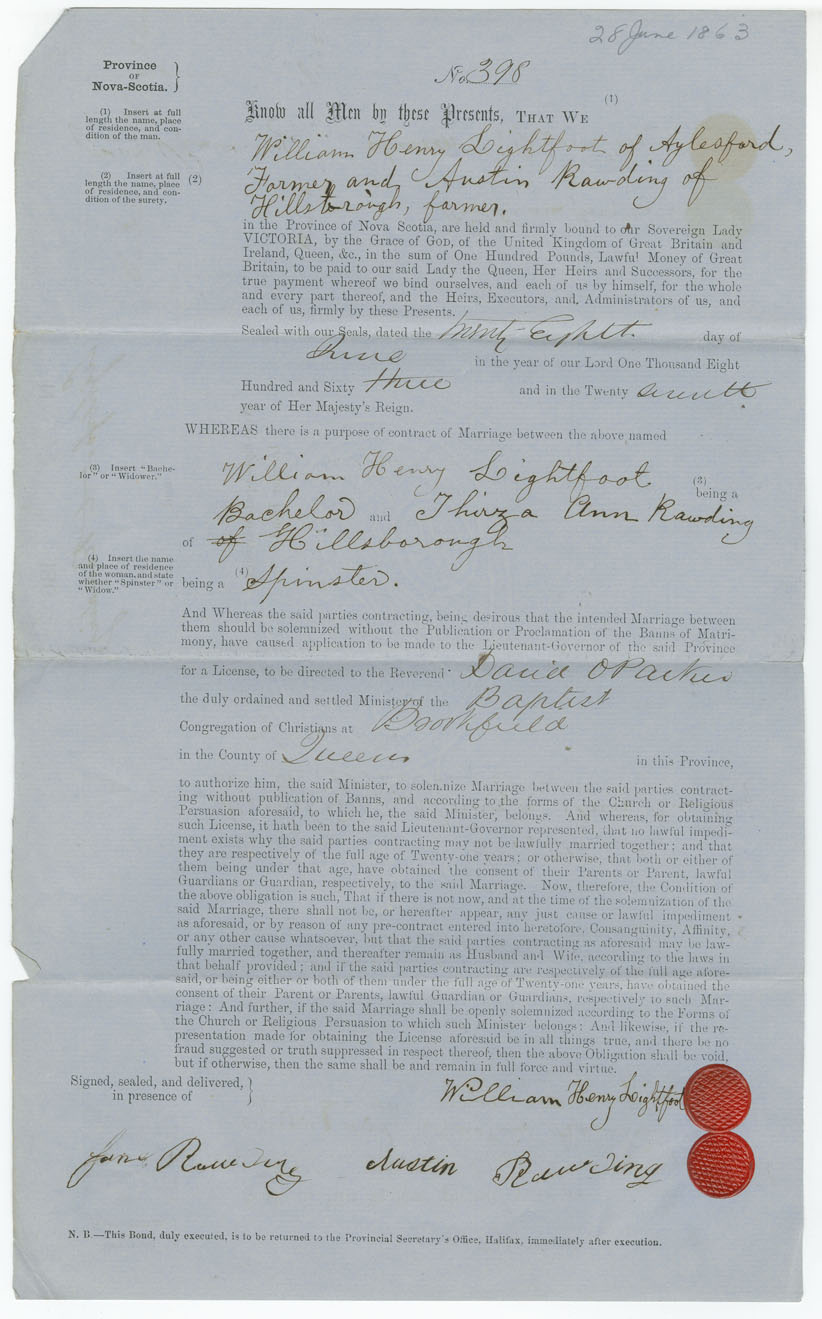 28 June 1863
Province
OF
Nova-Scotia.
No. 398
(1) Insert at full
length the name, place
of residence, and con-
dition of the man.
Know all Men by these Presents, THAT WE (1)
William Henry Lightfoot of Aylesford,
(2) Insert at full
length the name, place
of residence, and con-
dition of the surety.
(2) Farmer and Austin Rawding of
Hillsborough, farmer.
in the Province of Nova Scotia, are held and firmly bound to our Sovereign Lady
VICTORIA, by the Grace of GOD, of the United Kingdom of Great Britain and
Ireland, Queen, &c., in the sum of One Hundred Pounds, Lawful Money of Great
Britain, to be paid to our said Lady the Queen, Her Heirs and Successors, for the
true payment whereof we bind ourselves, and each of us by himself, for the whole
and every part thereof, and the Heirs, Executors, and, Administrators of us, and
each of us, firmly by these Presents.
Sealed with our Seals, dated the twenty Eight day of
June in the year of our Lord One Thousand Eight
Hundred and Sixty three and in the Twenty seventh
year of Her Majesty's Reign.
WHEREAS there is a purpose of contract of Marriage between the above named
(3) Insert "Bache-
lor" or "Widower."
William Henry Lightfoot (3) being a
Bachelor and Thirza Ann Rawding
of of Hillsborough
(4) Insert the name
and place of residence
of the woman, and state
whether "Spinster" or
"Widow."
being a (4) Spinster.
And Whereas the said parties contracting, being desirous that the intended Marriage between
them should be solemnized without the Publication or Proclamation of the Banns of Matri-
mony, have caused application to be made to the Lieutenant-Governor of the said Province
for a License, to be directed to the Reverend David O Parker
the duly ordained and settled Minister of the Baptist
Congregation of Christians at Brookfield
in the County of Queens in this Province,
to authorize him, the said Minister, to solemnize Marriage between the said parties contract-
ing without publication of Banns, and according to the forms of the Church or Religious
Persuasion aforesaid, to which he, the said Minister, belongs. And whereas, for obtaining
such License, it hath been to the said Lieutenant-Governor represented, that no lawful impedi-
ment exists why the said parties contracting may not be lawfully married together; and that
they are respectively of the full age of Twenty-one years; or otherwise, that both or either of
them being under that age, have obtained the consent of their Parents or Parent, lawful
Guardians or Guardian, respectively, to the said Marriage. Now, therefore, the Condition of
the above obligation is such, That if there is not now, and at the time of the solemnization of the
said Marriage, there shall not be, or hereafter appear, any just cause or lawful impediment
as aforesaid, or by reason of any pre-contract entered into heretofore, Consanguinity, Affinity,
or any other cause whatsoever, but that the said parties contracting as aforesaid may be law-
fully married together, and thereafter remain as Husband and Wife, according to the laws in
that behalf provided; and if the said parties contracting are respectively of the full age afore-
said, or being either or both of them under the full age of Twenty-one years, have obtained the
consent of their Parent or Parents, lawful Guardian or Guardians, respectively to such Mar-
riage: And further, if the said Marriage shall be openly solemnized according to the Forms of
the Church or Religious Persuasion to which such Minister belongs: And likewise, if the re-
presentation made for obtaining the License aforesaid be in all things true, and there be no
fraud suggested or truth suppressed in respect thereof, then the above Obligation shall be void,
but if otherwise, then the same shall be and remain in full force and virtue.
Signed, sealed, and delivered,
in presence of
William Henry Lightfoot
Jane Rawding Austin Rawding
N. B.—This Bond, duly executed, is to be returned to the Provincial Secretary's Office, Halifax, immediately after execution.